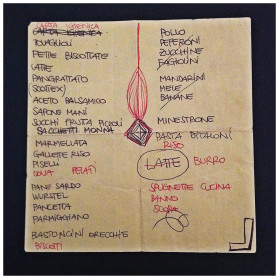 CARTA IGIENICA
CARTA IGIENICA
TOVAGLIOLI
FETTE BISCOTTATE
LATTE
PANGRATTATO
SCOTTEX
ACETO BALSAMICO
SAPONE MANI
SUCCHI FRUTTA PICCOLI
SACCHETTI NONNA
MARMELLATA
GALLETTE RISO
PISELLI
UOVA PELATI
PANE SARDO
WURSTEL
PANCETTA
PARMIGIANO
BASTONCINI ORECCHIE
BISCOTTI
POLLO
PEPERONI
ZUCCHINE
FAGIOLINI
MANDARINI
MELE
BANANE
MINESTRONE
PASTA DITALONI
RISO
LATTE BURRO
SPUGNETTE CUCINA
BAGNO
SCOPA